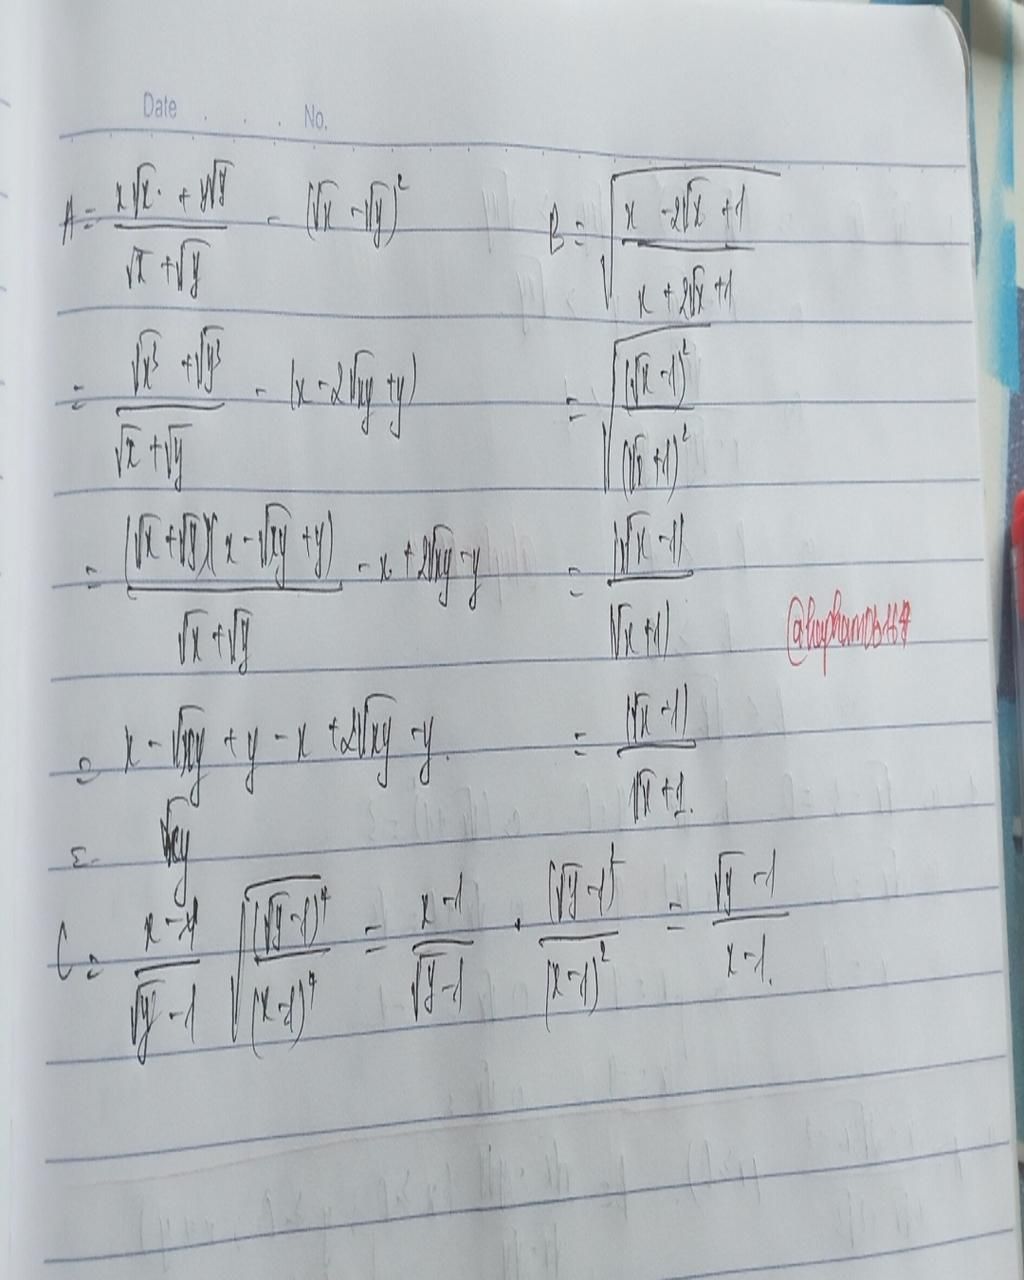 Date . . . No.
A = \frac{x\sqrt{x} + y\sqrt{y}}{\sqrt{x} + \sqrt{y}} - (\sqrt{x} - \sqrt{y})^2
= \frac{\sqrt{x^3} + \sqrt{y^3}}{\sqrt{x} + \sqrt{y}} - (x - 2\sqrt{xy} + y)
= \frac{(\sqrt{x} + \sqrt{y})(x - \sqrt{xy} + y)}{\sqrt{x} + \sqrt{y}} - x + 2\sqrt{xy} - y
= x - \sqrt{xy} + y - x + 2\sqrt{xy} - y.
= \sqrt{xy}
B = \sqrt{\frac{x - 2\sqrt{x} + 1}{x + 2\sqrt{x} + 1}}
= \sqrt{\frac{(\sqrt{x} - 1)^2}{(\sqrt{x} + 1)^2}}
= \frac{|\sqrt{x} - 1|}{|\sqrt{x} + 1|}
= \frac{|\sqrt{x} - 1|}{\sqrt{x} + 1.}
C = \frac{x - 1}{\sqrt{y} - 1} \sqrt{\frac{(\sqrt{y} - 1)^4}{(x - 1)^4}} = \frac{x - 1}{\sqrt{y} - 1} . \frac{(\sqrt{y} - 1)^2}{(x - 1)^2} = \frac{\sqrt{y} - 1}{x - 1.}